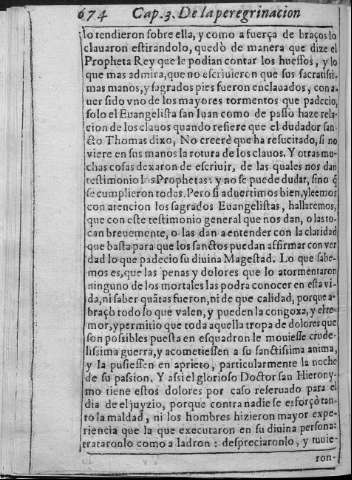 674 Cap. 3. De la peregrinacion
lo tendieron sobre ella, y como a fuerça de braços lo
clauaron estirandolo, quedò de manera que dize el
Propheta Rey que le podian contar los huessos, y lo
que mas admira, que no escriuieren que sus sacratissi-
mas manos, y sagrados pies fueron enclauados, con a-
uer sido vno de los mayores tormentos que padecio,
solo el Euangelista san Iuan como de passo haze rela-
cion de los clauos quando refiere que el dudador san-
cto Thomas dixo, No creerè que ha resucitado, si no
viere en sus manos la rotura de los clauos. Y otras mu-
chas cosas dexaron de escriuir, de las quales nos dan
testimonio los Prophetas: y no se puede dudar, sino q̃
se cumplieron todas. Pero si aduertimos bien, y leemos
con atencion los sagrados Euangelistas, hallaremos,
que con este testimonio general que nos dan, o las to-
can breuemente, o las dan a entender con la claridad
que basta para que los sanctos puedan affirmar con ver
dad lo que padecio su diuina Magestad. Lo que sabe-
mos es, que las penas y dolores que lo atormentaron
ninguno de los mortales las podra conocer en esta vi-
da, ni saber quãtas fueron, ni de que calidad, porque a-
braçò todo lo que valen, y pueden la congoxa, y el te-
mor, y permitio que toda aquella tropa de dolores que
son possibles puesta en esquadron le mouiesse crude-
lissima guerra, y acometiessen a su sanctissima anima,
y la pusiessen en aprieto, particularmente la noche
de su passion. Y assi el glorioso Doctor san Hierony-
mo tiene estos dolores por caso reseruado para el
dia del juyzio, porque contra nadie se esforçò tan-
to la maldad, ni los hombres hizieron mayor expe-
riencia que la que executaron en su diuina persona:
trataronlo como a ladron: despreciaronlo, y tuuie-
ron-